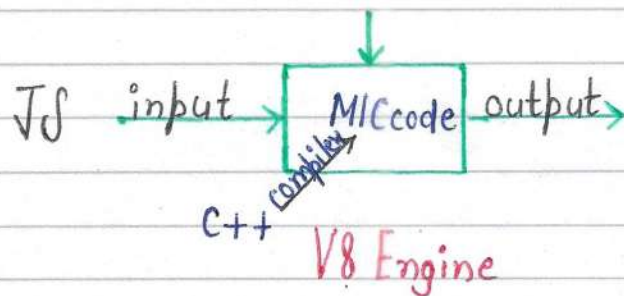 JS input M/C code output
compiler
C++
V8 Engine